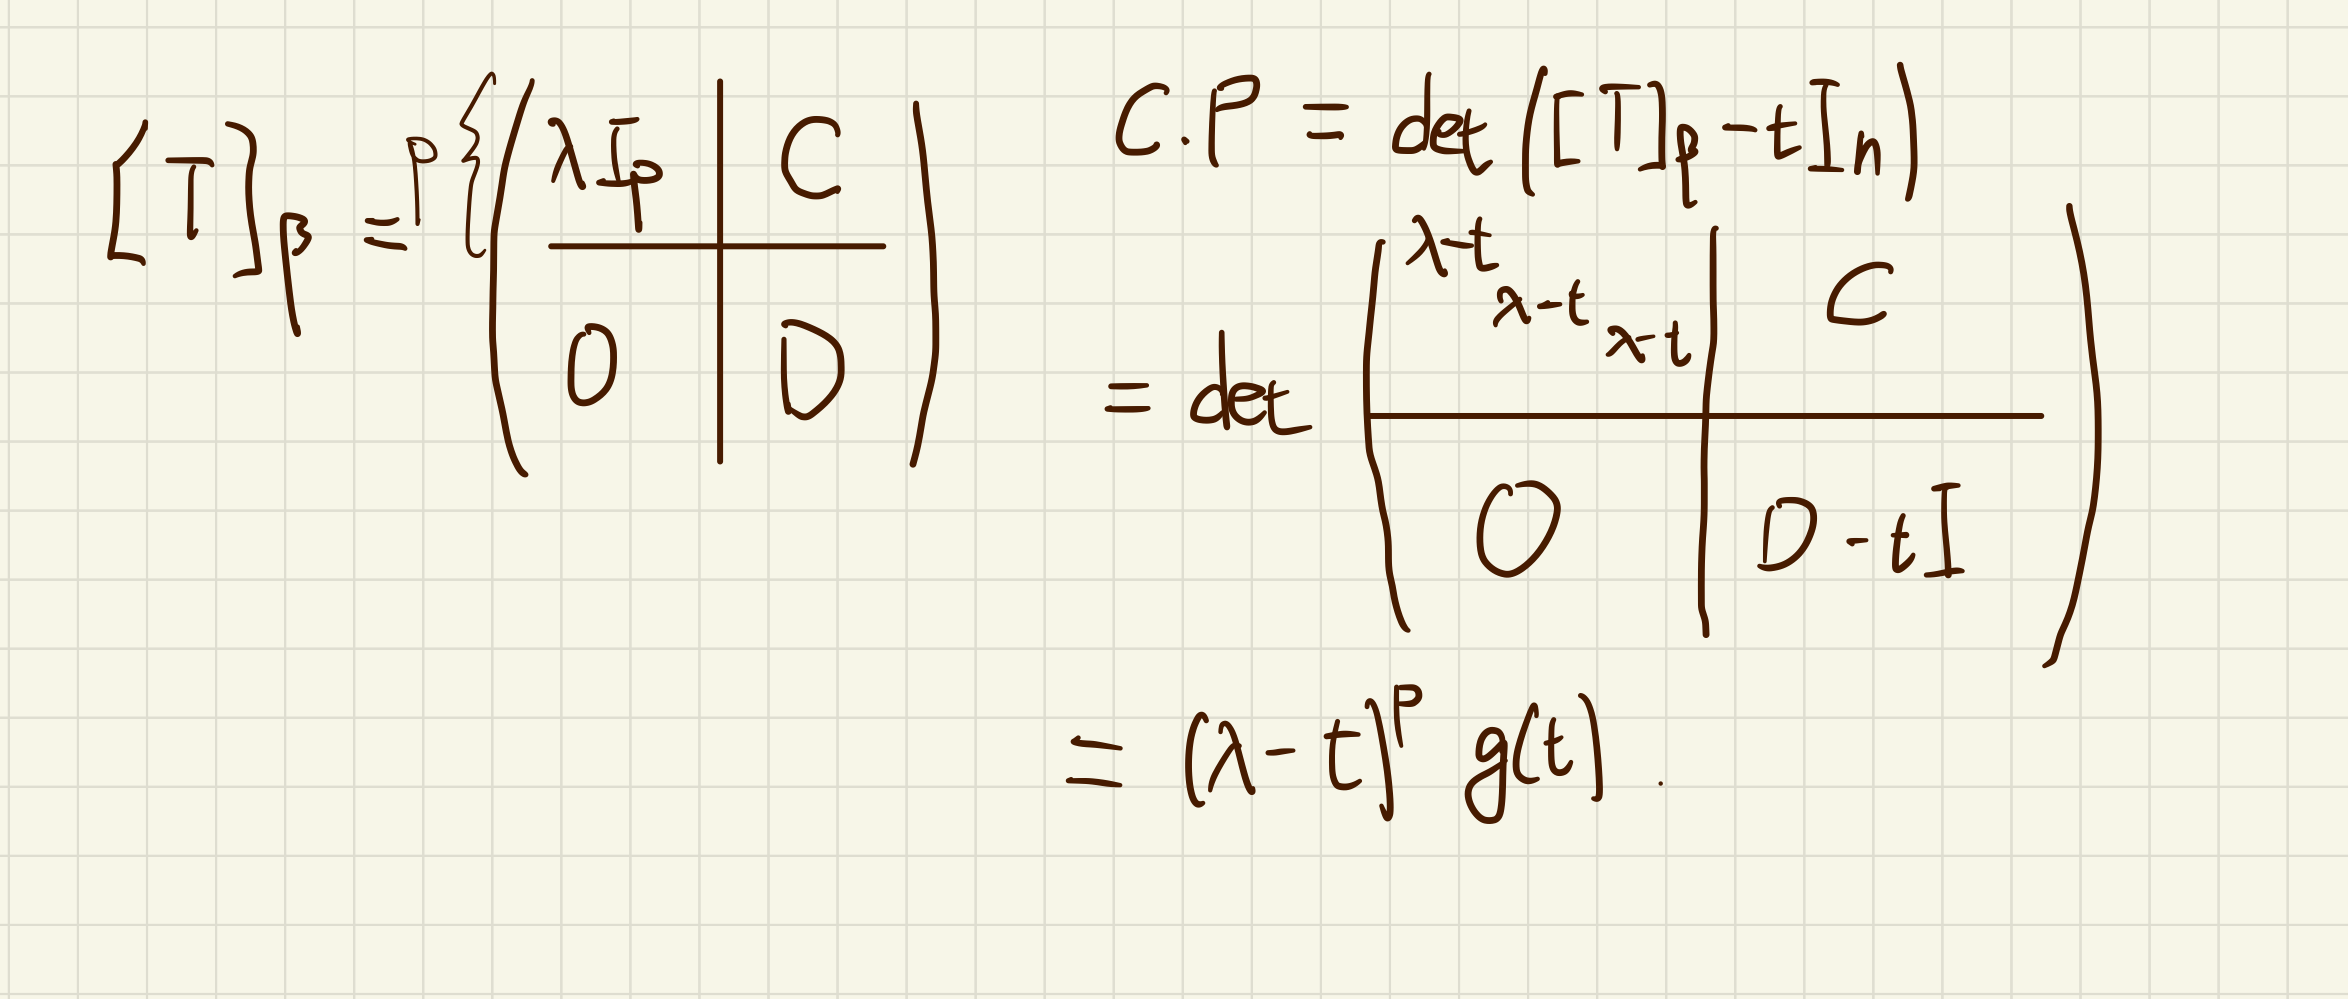 [T]β = p{ ( λIp | C
O | D )
C.P = det([T]β - tIn)
= det ( λ-t λ-t λ-t | C
O | D - tI )
= (λ - t)^p g(t).